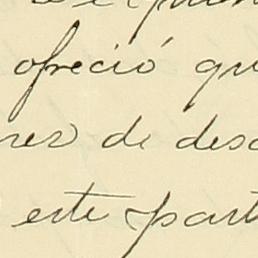 ofreció qu
res de des
este part